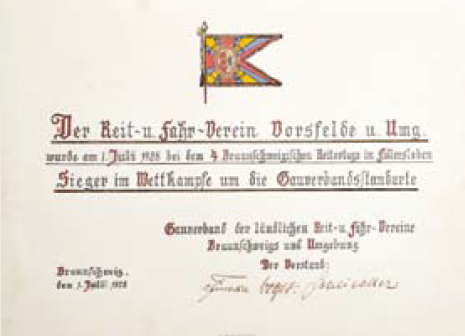 Der Reit-u. Fahr-Verein Vorsfelde u. Umg.
wurde am 1. Juli 1928 bei dem 4. Braunschweigischen Reitertage in
Sieger im Wettkampfe um die Gauverbandsstandarte
Gauverband der ländlichen Reit-u. Fahr-Vereine
Braunschweigs und Umgebung
Der Vorstand:
Braunschweig,
den 1. Juli 1928